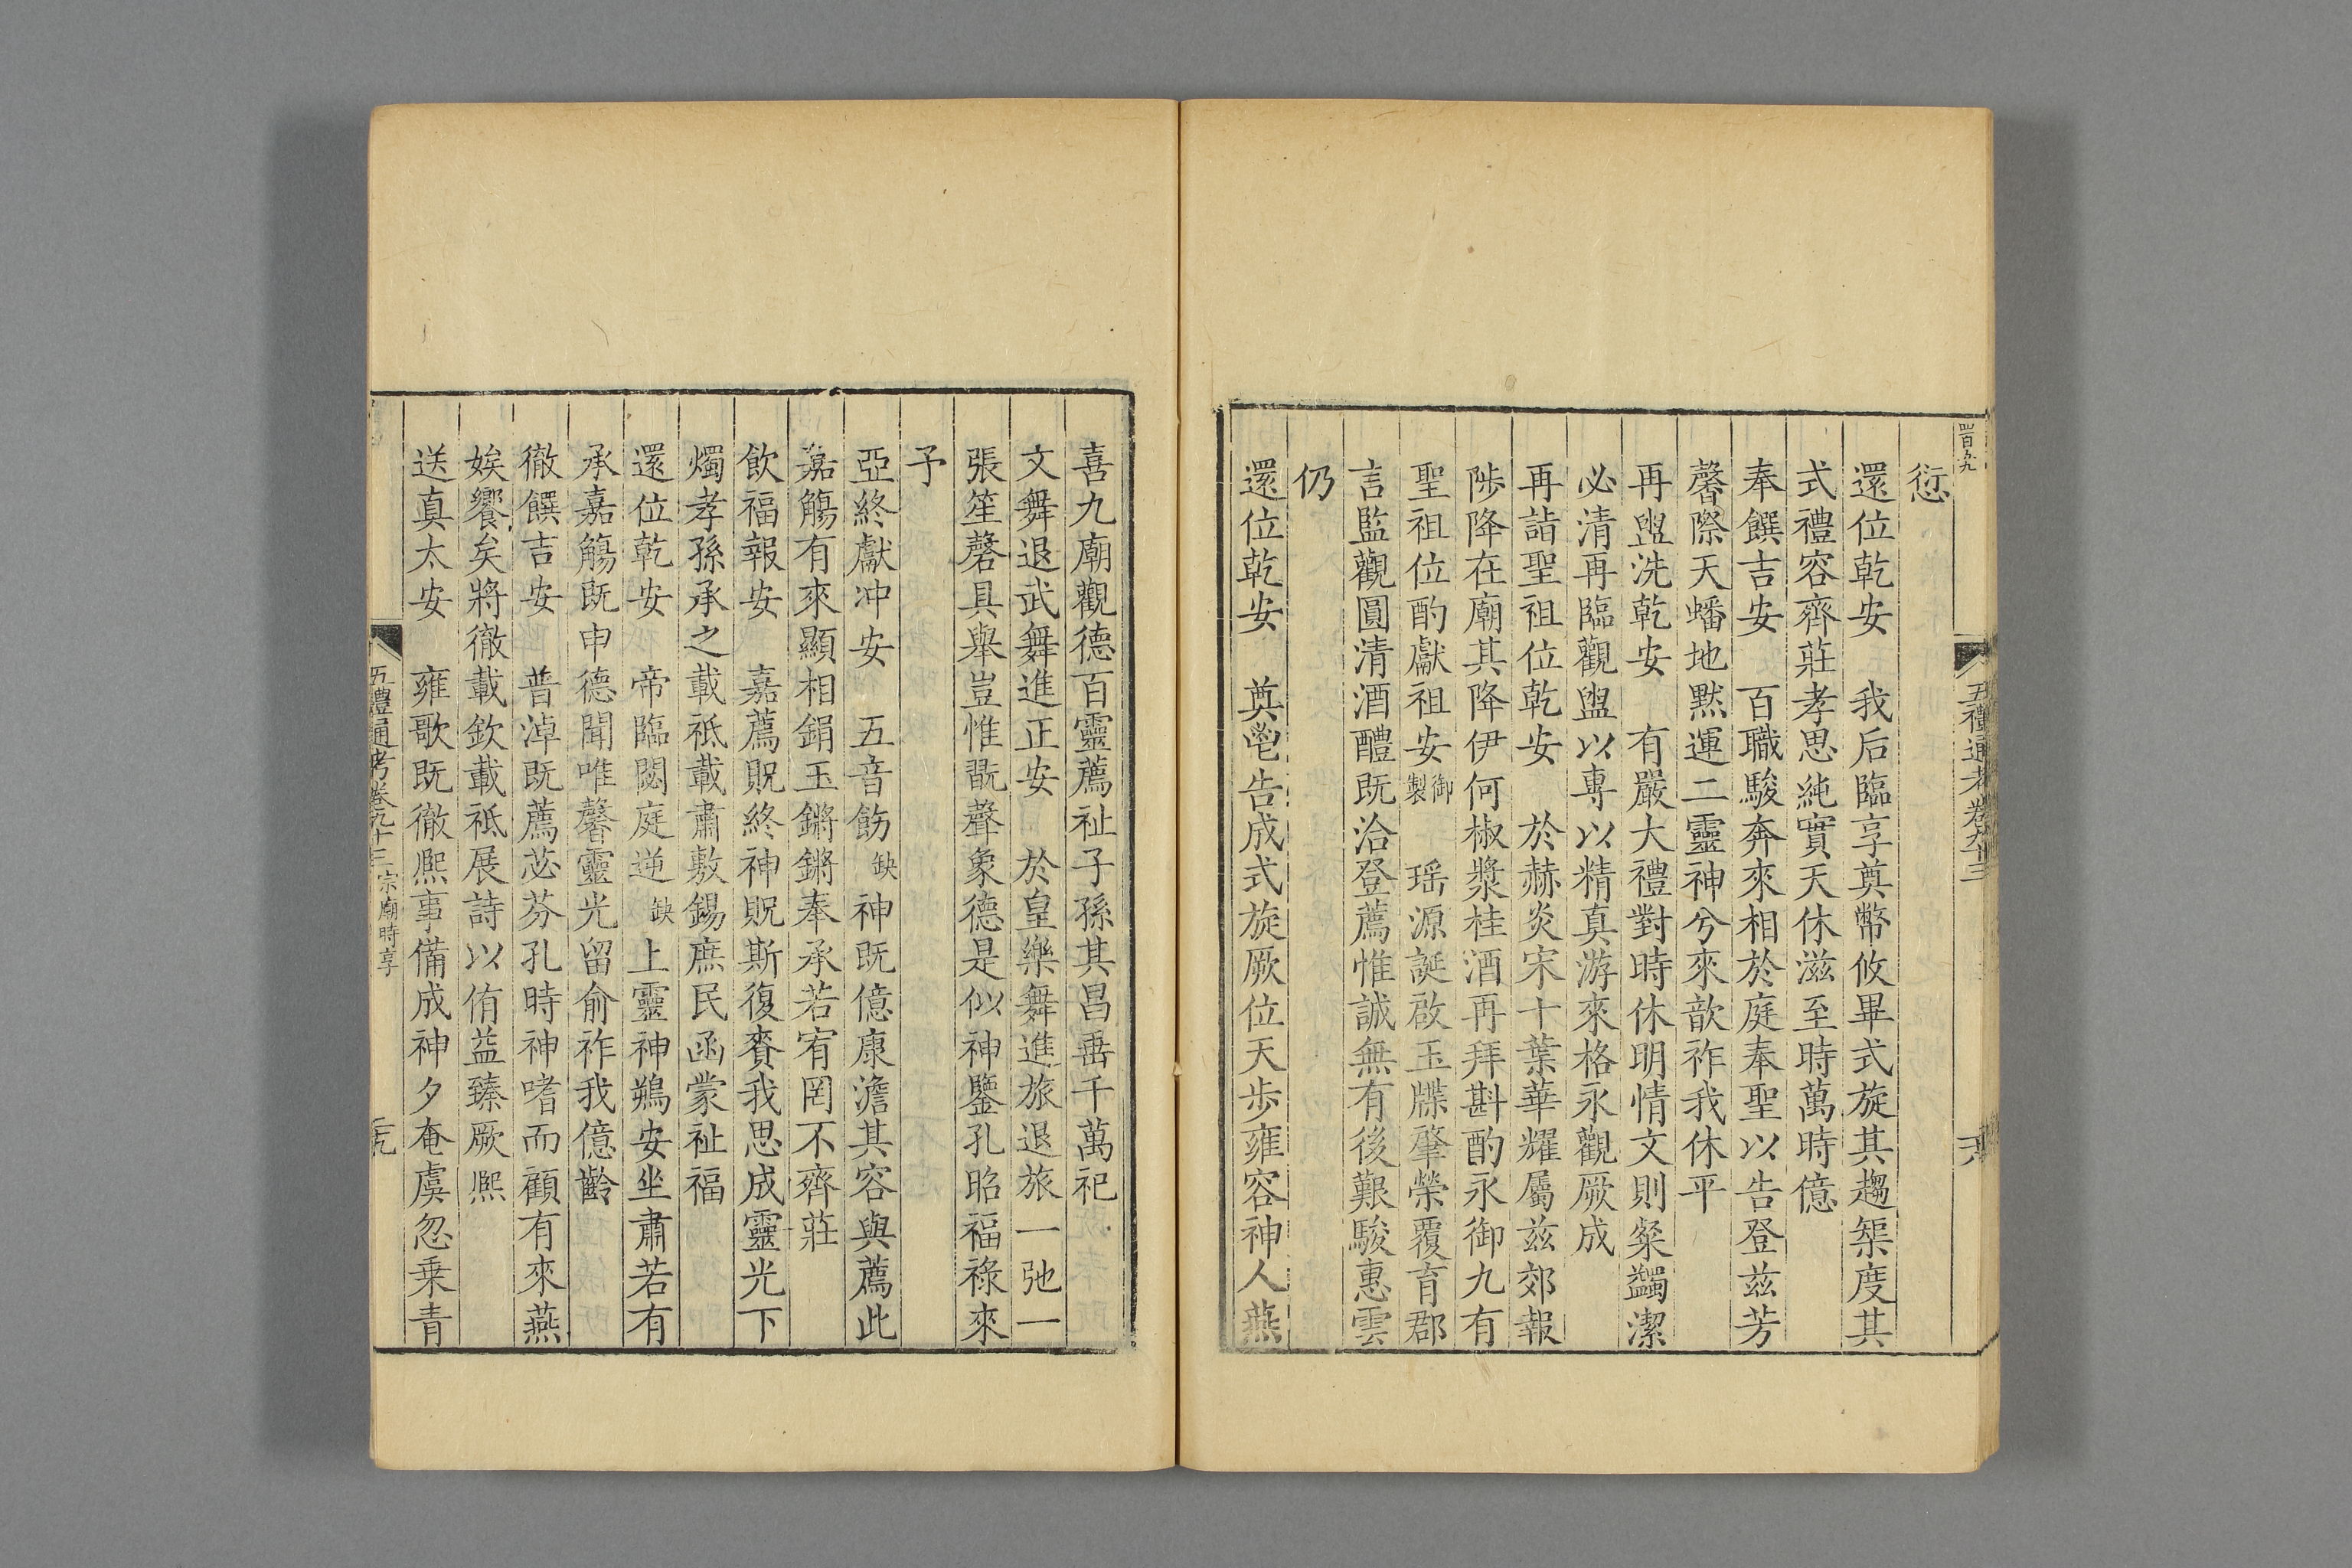 四百五九
五禮通考卷九十三
六
愆
還位乾安　我后臨享奠幣攸畢式旋其趨榘度其
式禮容齊莊孝思純實天休滋至時萬時億
奉饌吉安　百職駿奔來相於庭奉聖以告登兹芳
馨際天蟠地默運二靈神兮來歆祚我休平
再盥洗乾安　有嚴大禮對時休明情文則粲蠲潔
必清再臨觀盥以專以精真游來格永觀厥成
再詣聖祖位乾安　於赫炎宋十葉華耀屬兹郊報
陟降在廟其降伊何椒漿桂酒再拜斟酌永御九有
聖祖位酌獻祖安御製　瑶源誕啟玉牒肇榮覆育郡
言監觀圓清酒醴既洽登薦惟誠無有後艱駿惠雲
仍
還位乾安　奠鬯告成式旋厥位天步雍容神人燕
喜九廟觀德百靈薦祉子孫其昌垂千萬祀
文舞退武舞進正安　於皇樂舞進旅退旅一弛一
張笙磬具舉豈惟翫聲象德是似神鑒孔昭福祿來
予
亞終獻冲安　五音飭缺神既億康澹其容與薦此
嘉觴有來顯相鋗玉鏘鏘奉承若宥罔不齊莊
飲福報安　嘉薦貺終神貺斯復賚我思成靈光下
燭孝孫承之載祗載肅敷錫庶民函蒙祉福
還位乾安　帝臨閟庭逆缺上靈神鵷安坐肅若有
承嘉觴既申德聞唯馨靈光留俞祚我億齡
徹饌吉安　普淖既薦苾芬孔時神嗜而顧有來燕
娭饗矣將徹載欽載祗展詩以侑益臻厥熙
送真太安　雍歌既徹熙事備成神夕奄虞忽乗青
五禮通考卷九十三　宗廟時享